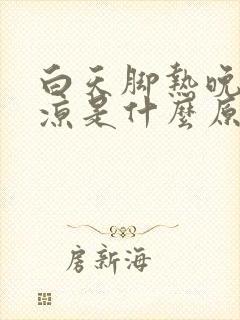 白天脚熱晚
涼是什麼原
房新海